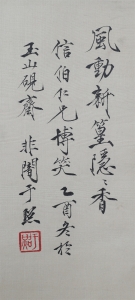 風動新篁隱〻香
信伯仁兄博笑 乙酉冬於
玉山硯齋 非闇于照